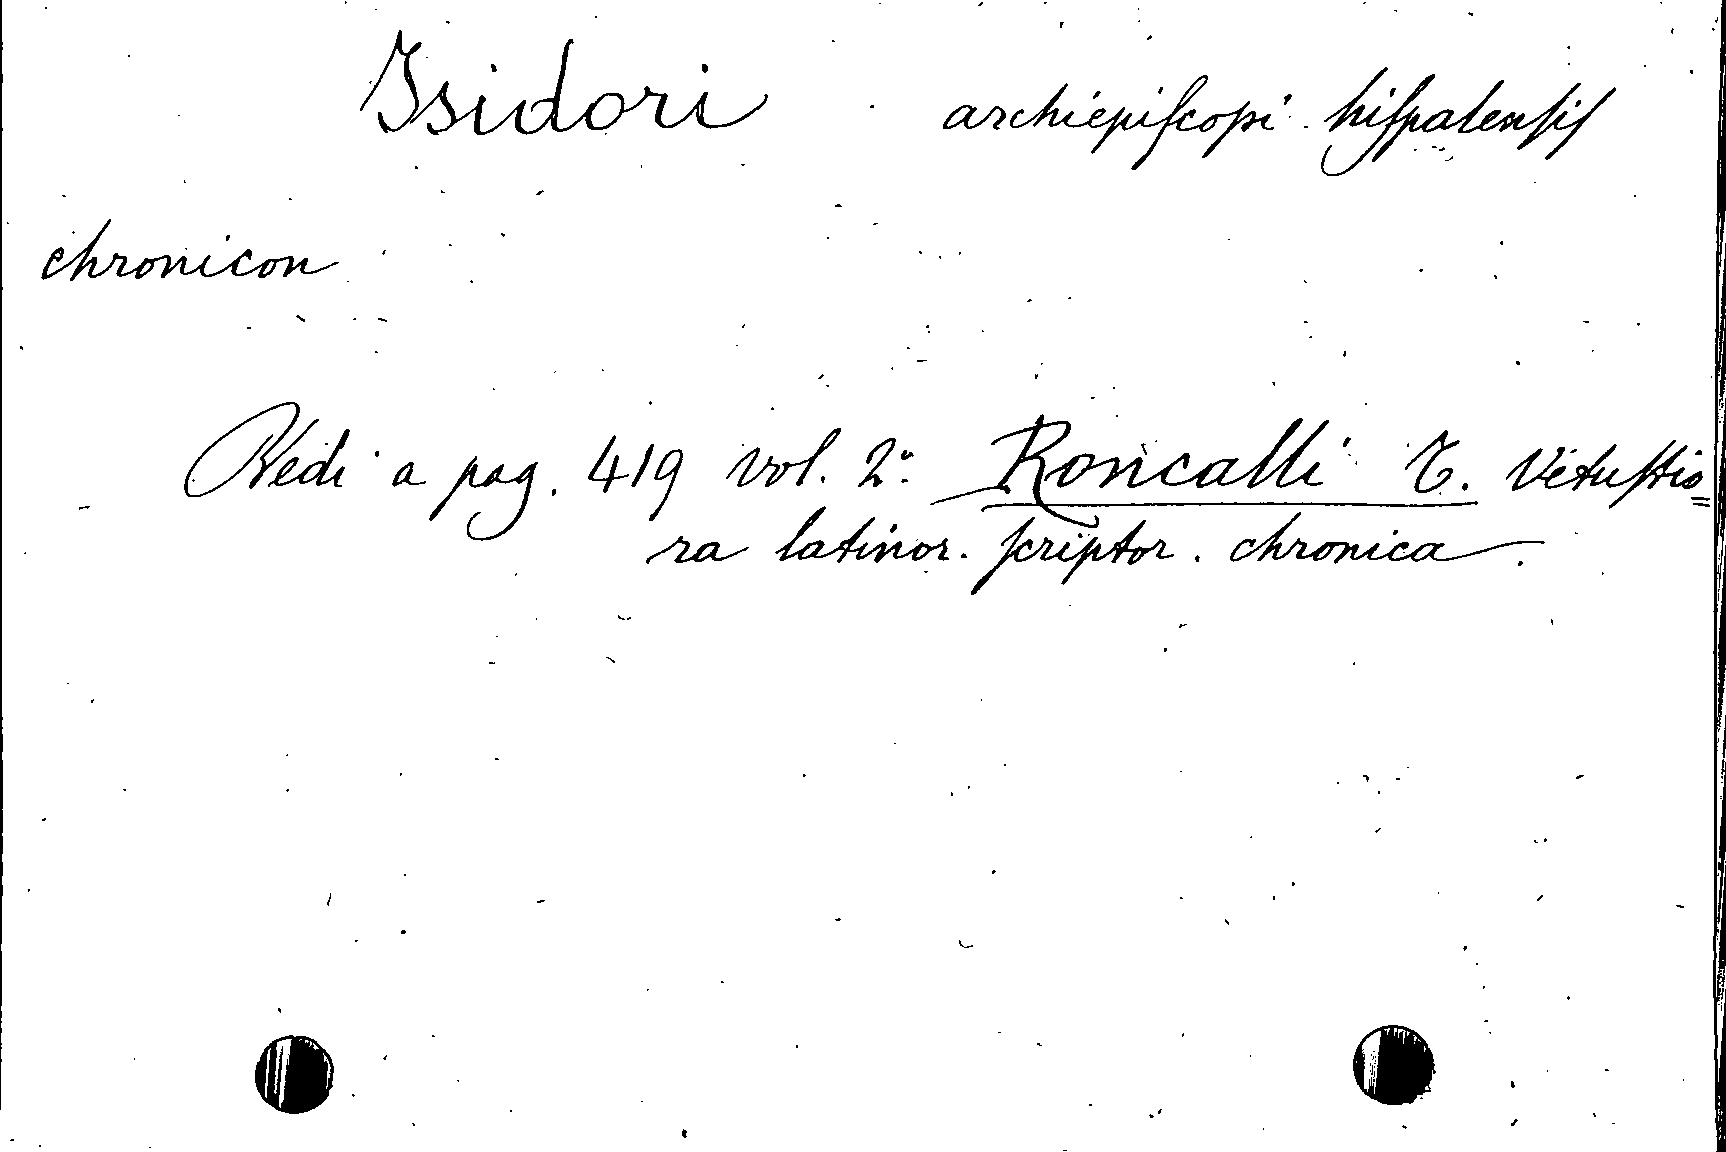 Isidori archiepiſcopi hiſpalenſiſ
chronicon
Vedi a pag. 419 vol. 2º Roncalli T. Vetuſtio=
ra latinor. ſcriptor. chronica.